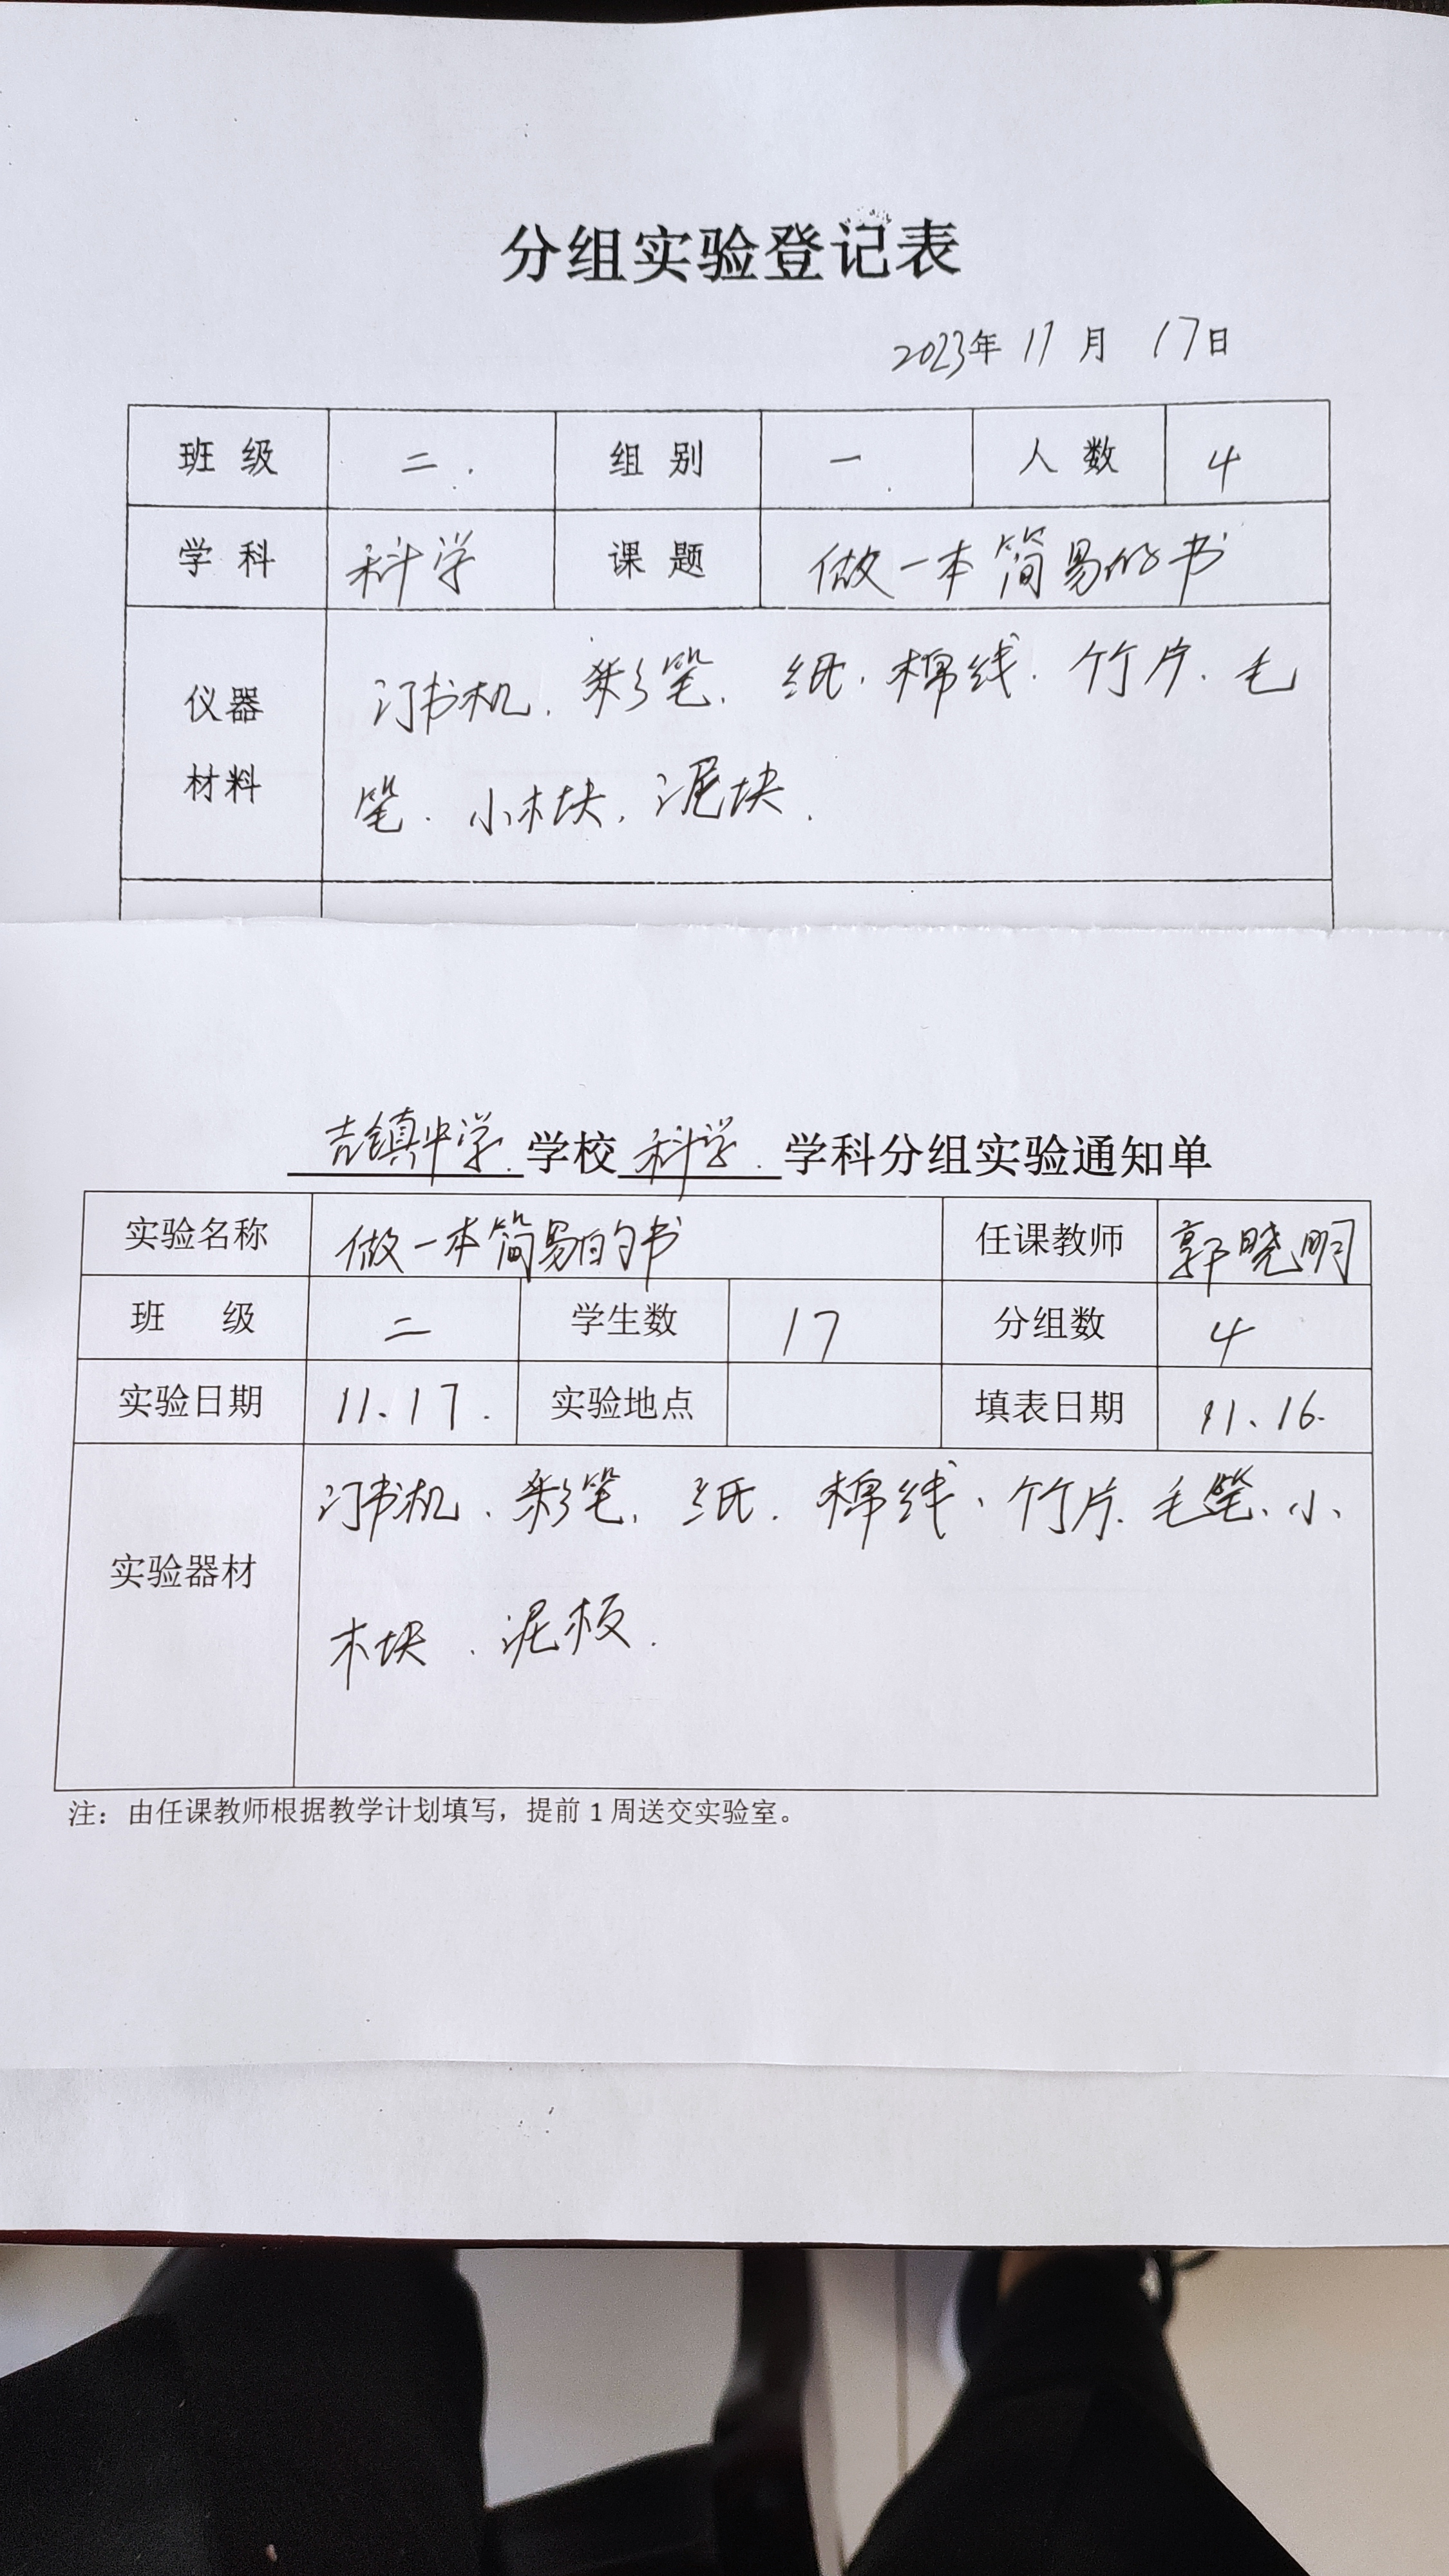 分组实验登记表
2023年 11 月 17日
班 级 二. 组 别 一 人 数 4
学 科 科学 课 题 做一本简易的书
仪器
材料
订书机. 彩笔. 纸. 棉线. 竹片. 毛
笔. 小木块. 泥块.
吉镇中学 学校 科学. 学科分组实验通知单
实验名称 做一本简易的书 任课教师 郭晓明
班 级 二 学生数 17 分组数 4
实验日期 11.17. 实验地点 填表日期 11.16.
实验器材
订书机、彩笔. 纸. 棉线、竹片. 毛笔、小、
木块. 泥板.
注：由任课教师根据教学计划填写，提前 1 周送交实验室。